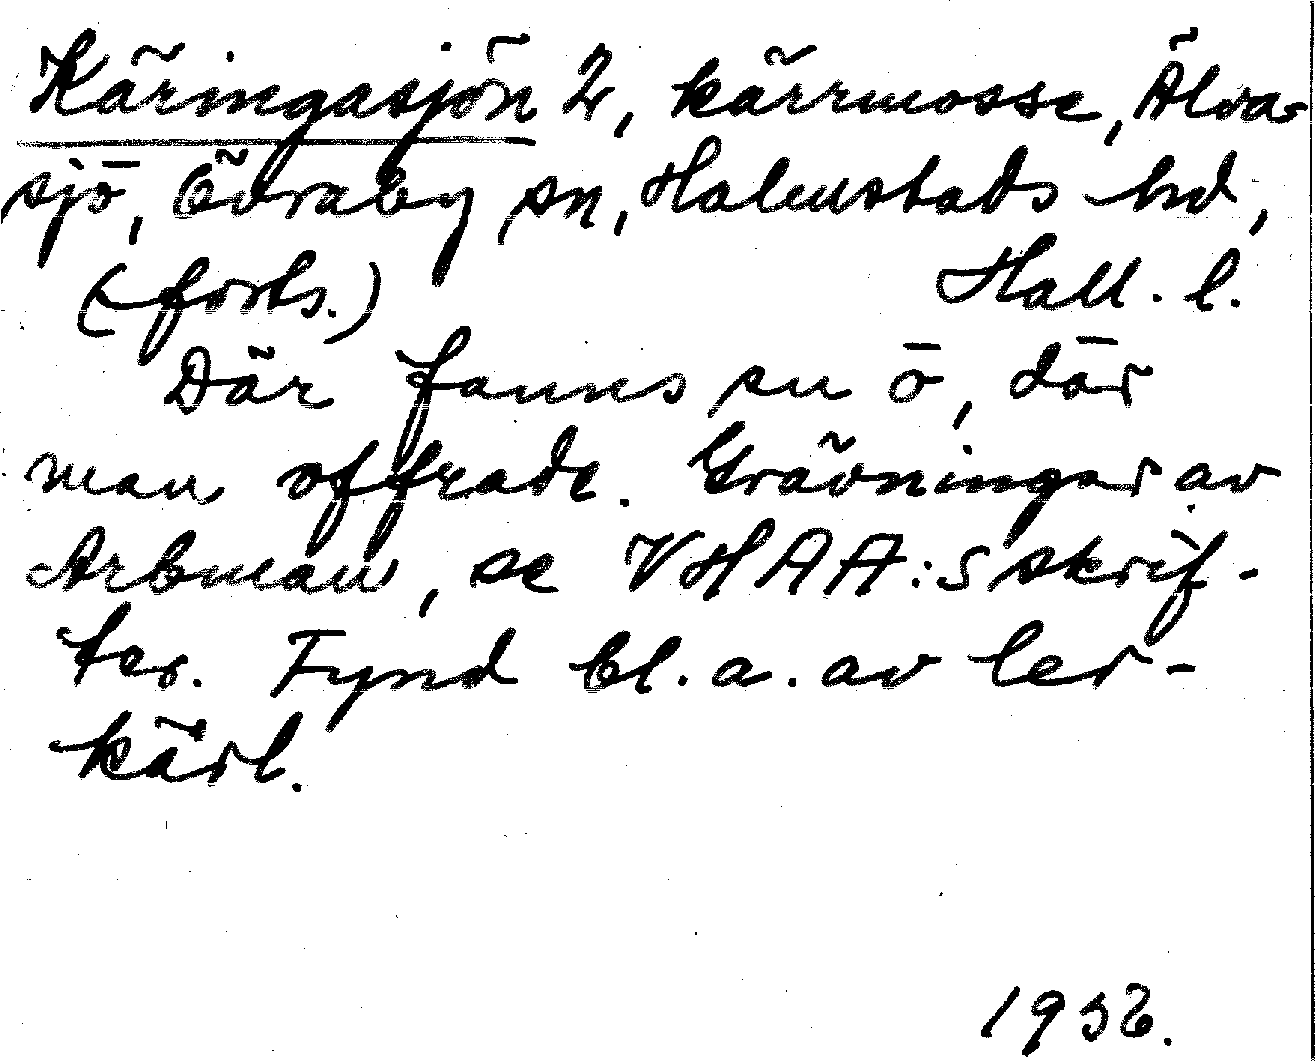 Käringasjön 2, kärrmosse, Älva-
sjö, Övraby sn, Halmstads hd,
(forts.) Hall. l.
Där fanns en ö, där
man offrade. Grävningar av
Arbman, se VHAA:s skrif-
ter. Fynd bl. a. av ler-
kärl.